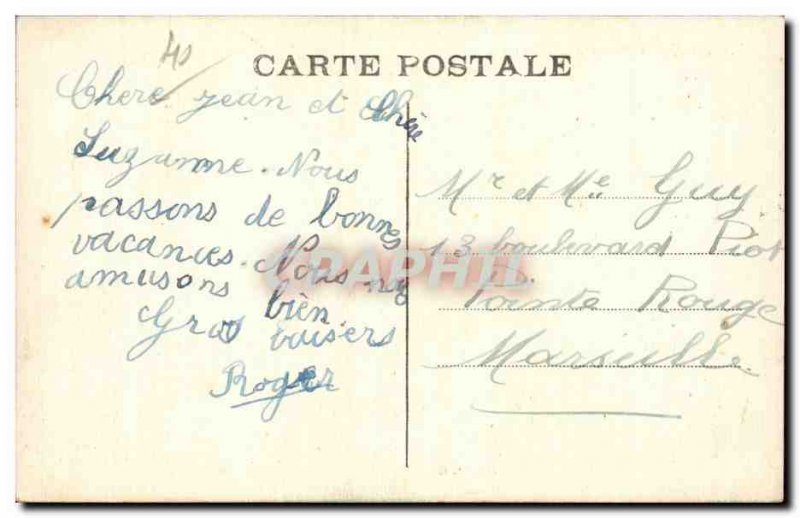 40
CARTE POSTALE
Chere Jean et Chère
Suzanne. Nous
passons de bonnes
vacances. Nous nous
amusons bien.
Gros baisers
Roger
Mr et Me Guy
13 boulevard Piot
Pointe Rouge
Marseille
CPAPHIL